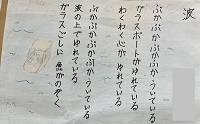 波
ぷかぷかぷかぷか ういている
ガラスボートがゆれている
わくわく心が ゆれている
ぷかぷかぷかぷかういている
波の上でゆれている
ガラスごしに 魚がのぞく